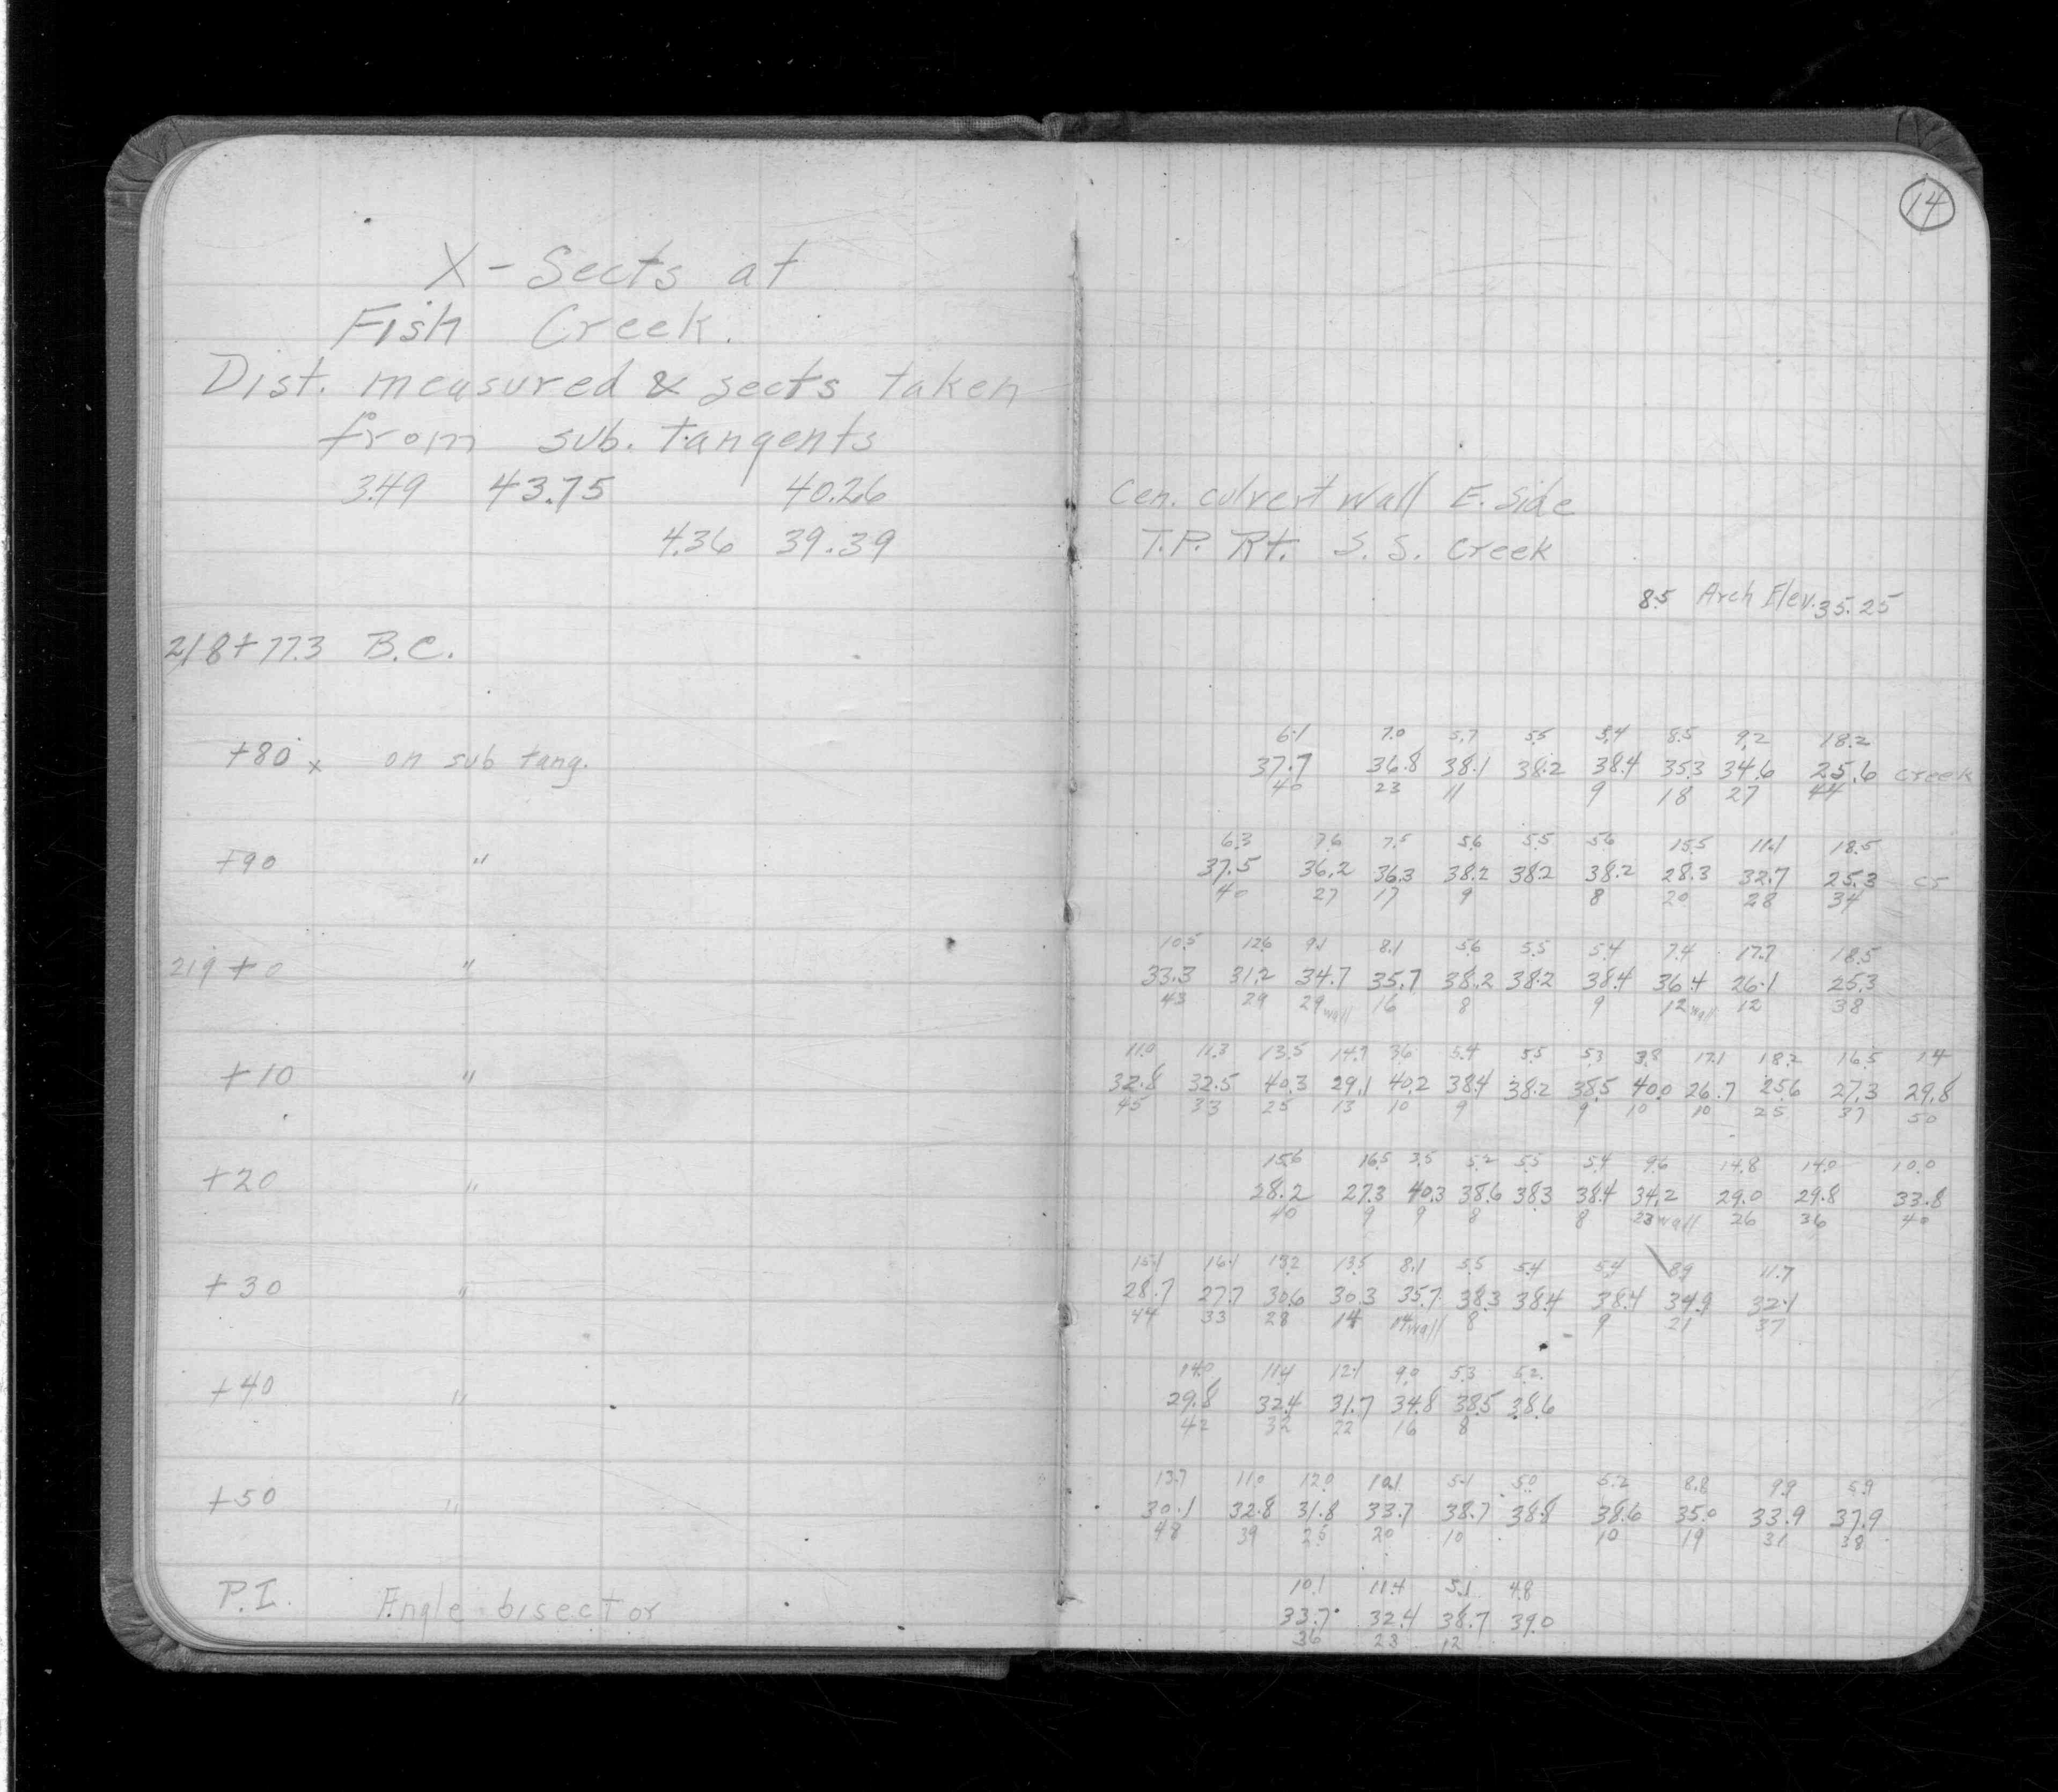 14
X-Sects at
Fish Creek.
Dist. measured & sects taken
from sub. tangents
3.49 43.75 40.26 Cen. culvert Wall E. Side
4.36 39.39 T.P. Rt. S. S. Creek
8.5 Arch Elev. 35.25
218+77.3 B.C.
6.1 7.0 5.7 5.5 5.4 8.5 9.2 18.2
+80 x on sub tang. 37.7 36.8 38.1 38.2 38.4 35.3 34.6 25.6 creek
40 23 11 9 18 27 44
6.3 7.6 7.5 5.6 5.5 5.6 15.5 11.1 18.5
+90 " 37.5 36.2 36.3 38.2 38.2 38.2 28.3 32.7 25.3
40 27 17 9 8 20 28 34
10.5 12.6 9.1 8.1 5.6 5.5 5.4 7.4 17.7 18.5
219+0 " 33.3 31.2 34.7 35.7 38.2 38.2 38.4 36.4 26.1 25.3
43 29 29 wall 16 8 9 12 wall 12 38
11.0 11.3 13.5 14.7 3.6 5.4 5.5 5.3 3.8 17.1 18.2 16.5 14
+10 " 32.8 32.5 40.3 29.1 40.2 38.4 38.2 38.5 40.0 26.7 25.6 27.3 29.8
45 33 25 13 10 9 9 10 10 25 37 50
15.6 16.5 3.5 5.2 5.5 5.4 9.6 14.8 14.0 10.0
+20 " 28.2 27.3 40.3 38.6 38.3 38.4 34.2 29.0 29.8 33.8
40 9 9 8 8 23 wall 26 36 40
15.1 16.1 13.2 13.5 8.1 5.5 5.4 5.4 8.9 11.7
+30 " 28.7 27.7 30.6 30.3 35.7 38.3 38.4 38.4 34.9 32.1
44 33 28 14 14 wall 8 9 21 37
14.0 11.4 12.1 9.0 5.3 5.2
+40 " 29.8 32.4 31.7 34.8 38.5 38.6
42 32 22 16 8
13.7 11.0 12.0 10.1 5.1 5.0 5.2 8.8 9.9 5.9
+50 " 30.1 32.8 31.8 33.7 38.7 38.8 38.6 35.0 33.9 37.9
48 39 25 20 10 10 19 31 38
10.1 11.4 5.1 4.8
P.I. Angle bisector 33.7 32.4 38.7 39.0
36 23 12